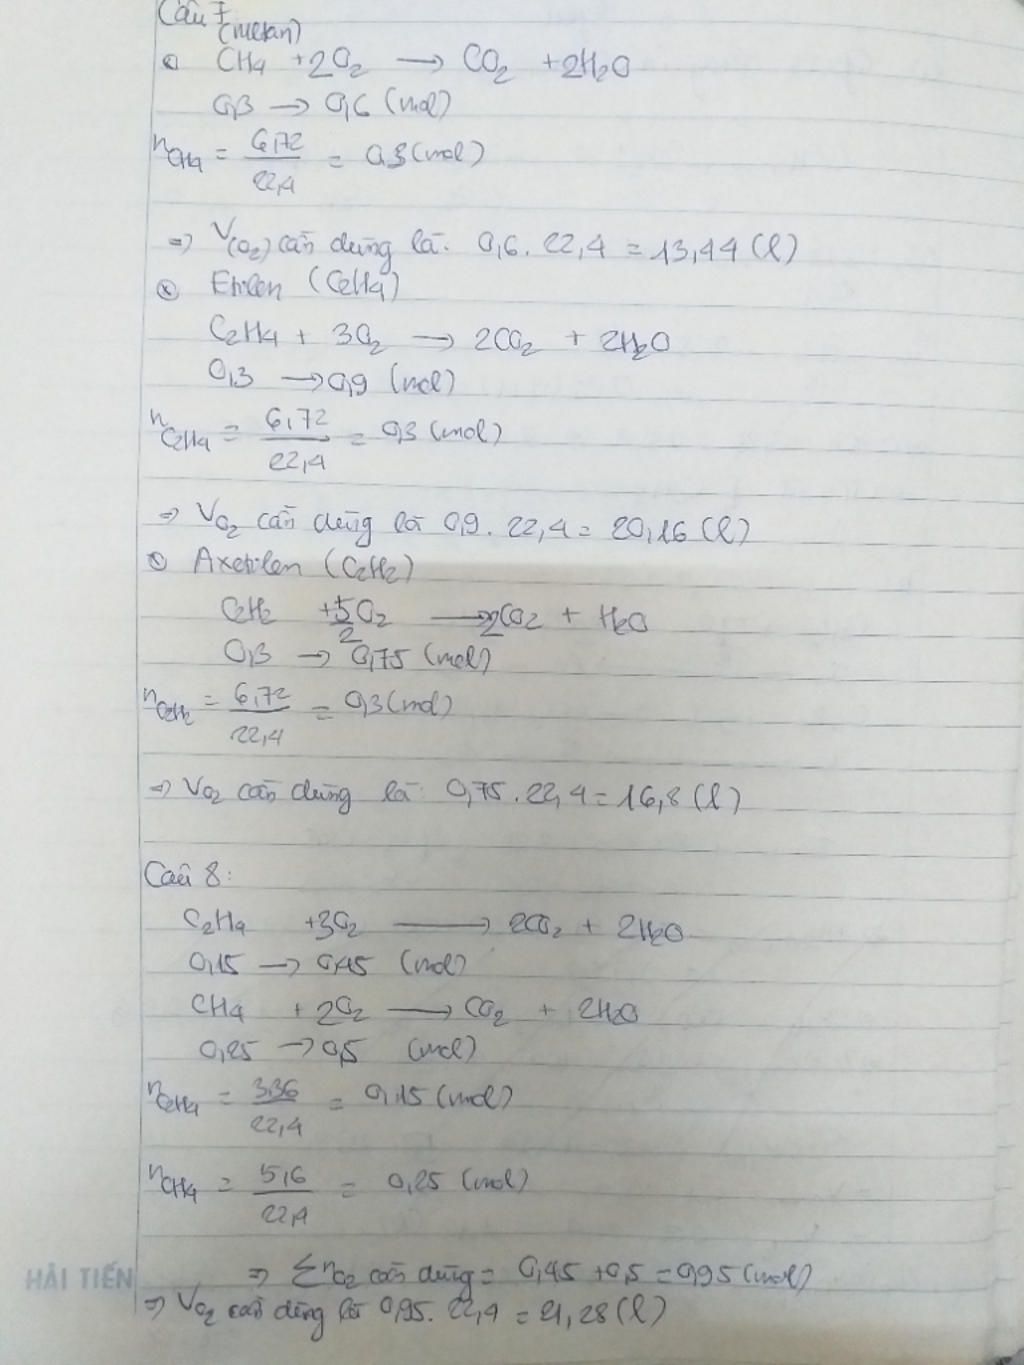 Câu 7
(metan)
CH4 +2O2 → CO2 +2H2O
0,3 → 0,6 (mol)
nCH4 = 6,72/22,4 = 0,3 (mol)
=> V(O2) cần dùng là: 0,6 . 22,4 = 13,44 (l)
Etilen (C2H4)
C2H4 + 3O2 → 2CO2 + 2H2O
0,3 → 0,9 (mol)
nC2H4 = 6,72/22,4 = 0,3 (mol)
=> VO2 cần dùng là 0,9 . 22,4 = 20,16 (l)
Axetilen (C2H2)
C2H2 + 5/2O2 → 2CO2 + H2O
0,3 → 0,75 (mol)
nC2H2 = 6,72/22,4 = 0,3 (mol)
=> VO2 cần dùng là: 0,75 . 22,4 = 16,8 (l)
Câu 8:
C2H4 +3O2 → 2CO2 + 2H2O
0,15 → 0,45 (mol)
CH4 + 2O2 → CO2 + 2H2O
0,25 → 0,5 (mol)
nC2H4 = 3,36/22,4 = 0,15 (mol)
nCH4 = 5,6/22,4 = 0,25 (mol)
=> ΣnO2 cần dùng = 0,45 + 0,5 = 0,95 (mol)
HẢI TIẾN
=> VO2 cần dùng là 0,95 . 22,4 = 21,28 (l)